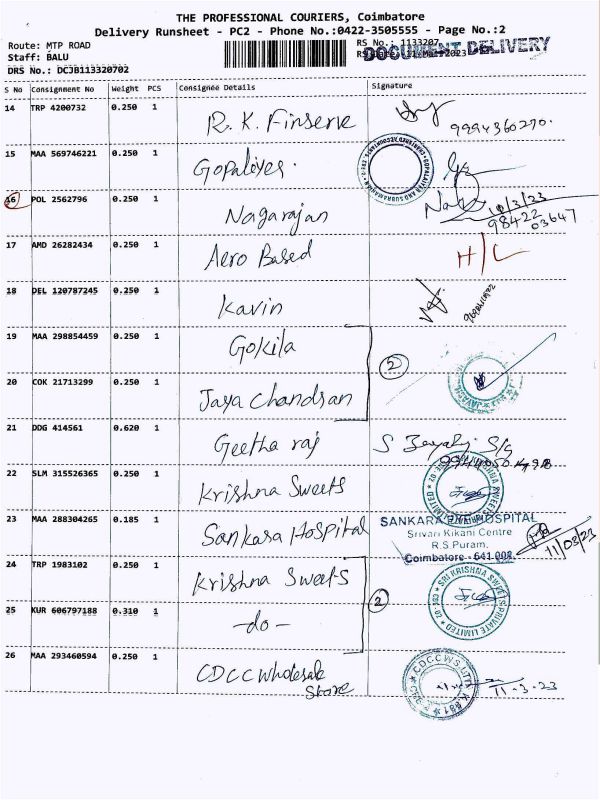 THE PROFESSIONAL COURIERS, Coimbatore
Delivery Runsheet - PC2 - Phone No.:0422-3505555 - Page No.:2
Route: MTP ROAD
RS No.: 1133207
DOCUMENT DELIVERY
Staff: BALU
DRS No.: DCJB113320702
S No Consignment No Weight PCS Consignee Details Signature
14 TRP 4200732 0.250 1 R. K. Finserve
9994360270.
15 MAA 569746221 0.250 1 Gopaliyes.
16 POL 2562796 0.250 1 Nagarajan
10/3/23
98422
03647
17 AMD 26282434 0.250 1 Aero Based H/C
18 DEL 120787245 0.250 1 Kavin
19 MAA 298854459 0.250 1 Gokila
2
20 COK 21713299 0.250 1 Jaya Chandran
21 DDG 414561 0.620 1 Geetha raj
22 SLM 315526365 0.250 1 Krishna Sweets
23 MAA 288304265 0.185 1 Sankara Hospital
SANKARA EYE HOSPITAL
Srivari Kikani Centre
R.S Puram,
Coimbatore - 641 002
11/03/23
24 TRP 1983102 0.250 1 Krishna Sweets
SRI KRISHNA SWEETS PRIVATE LIMITED
2
25 KUR 606797188 0.310 1 -do-
26 MAA 293460594 0.250 1 CDCC Wholesale
Store
11-3-23